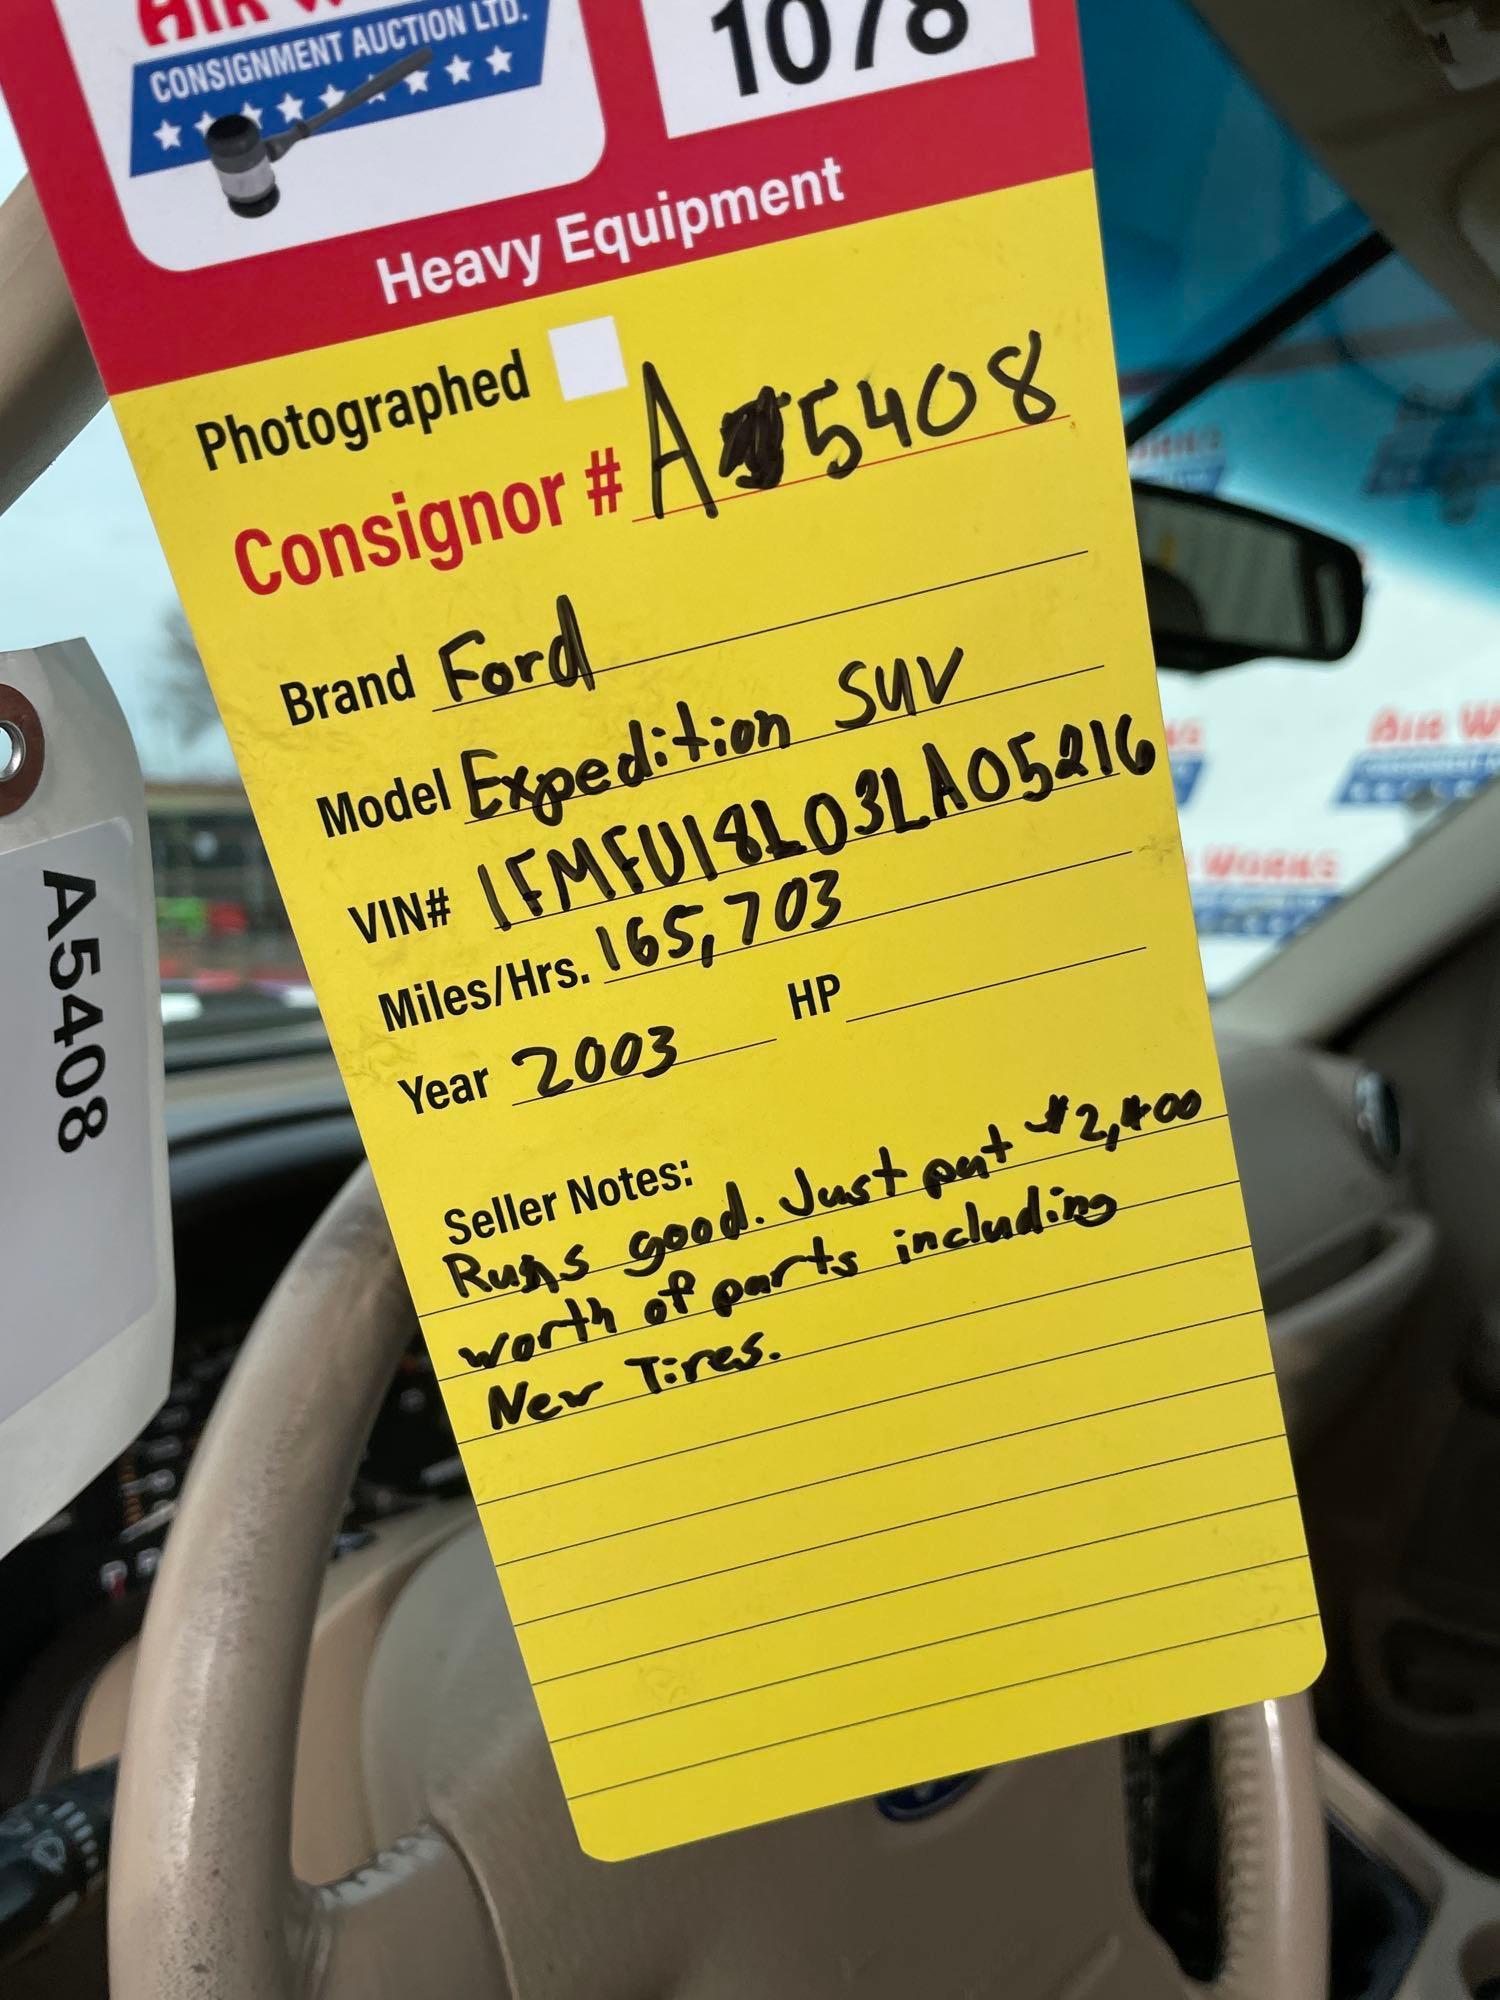 AIR
CONSIGNMENT AUCTION LTD.
1078
Heavy Equipment
Photographed
Consignor # A5408
Brand Ford
Model Expedition SUV
VIN# 1FMFU18L03LA05216
Miles/Hrs. 165,703
Year 2003 HP
Seller Notes:
Runs good. Just put $2,400
worth of parts including
New Tires.
A5408
AIR W
WORKS